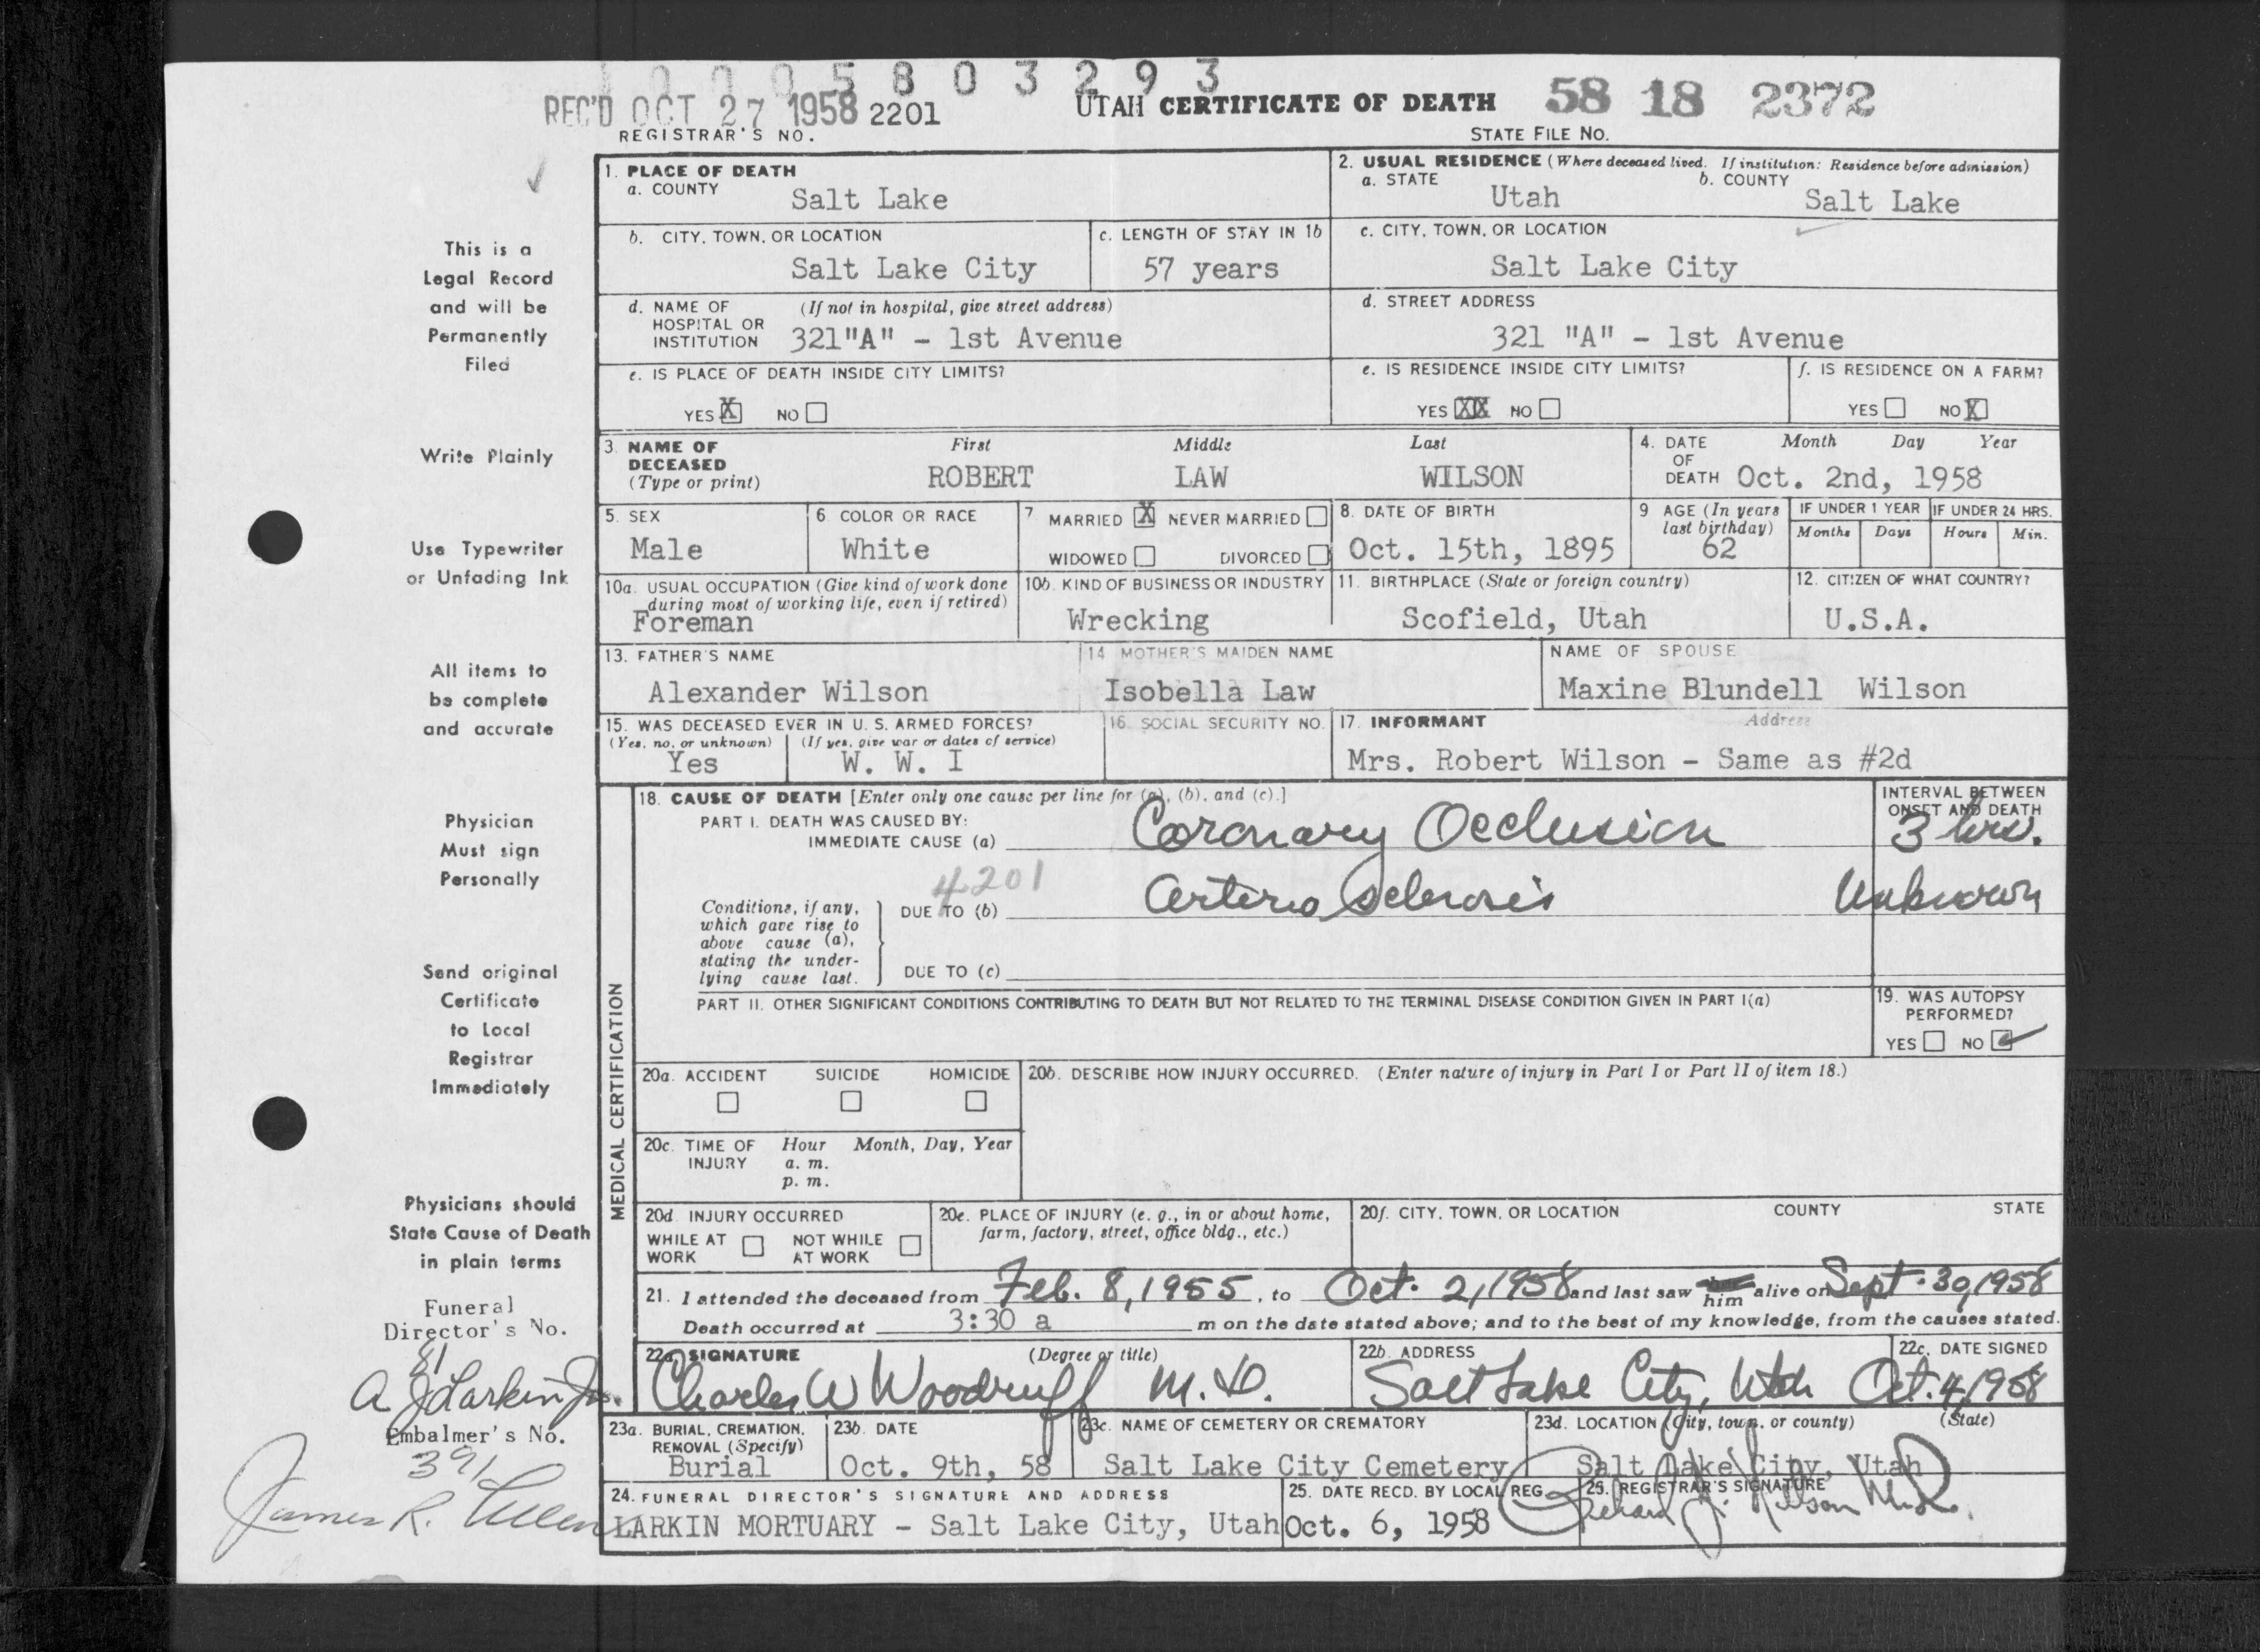 1 0 0 0 5 8 0 3 2 9 3
REC'D OCT 27 1958 2201 UTAH CERTIFICATE OF DEATH 58 18 2372
REGISTRAR'S NO. STATE FILE NO.
This is a
Legal Record
and will be
Permanently
Filed
Write Plainly
Use Typewriter
or Unfading Ink
All items to
be complete
and accurate
Physician
Must sign
Personally
Send original
Certificate
to Local
Registrar
Immediately
Physicians should
State Cause of Death
in plain terms
Funeral
Director's No.
81
A J Larkin Jr.
Embalmer's No.
391
James R.
1. PLACE OF DEATH
a. COUNTY
Salt Lake
2. USUAL RESIDENCE (Where deceased lived. If institution: Residence before admission)
a. STATE b. COUNTY
Utah Salt Lake
b. CITY, TOWN, OR LOCATION c. LENGTH OF STAY IN 1b c. CITY, TOWN, OR LOCATION
Salt Lake City 57 years Salt Lake City
d. NAME OF (If not in hospital, give street address) d. STREET ADDRESS
HOSPITAL OR
INSTITUTION 321"A" - 1st Avenue 321 "A" - 1st Avenue
e. IS PLACE OF DEATH INSIDE CITY LIMITS? e. IS RESIDENCE INSIDE CITY LIMITS? f. IS RESIDENCE ON A FARM?
YES X NO YES XX NO YES NO X
3. NAME OF First Middle Last 4. DATE Month Day Year
DECEASED OF
(Type or print) ROBERT LAW WILSON DEATH Oct. 2nd, 1958
5. SEX 6. COLOR OR RACE 7 MARRIED X NEVER MARRIED 8. DATE OF BIRTH 9 AGE (In years IF UNDER 1 YEAR IF UNDER 24 HRS.
last birthday) Months Days Hours Min.
Male White WIDOWED DIVORCED Oct. 15th, 1895 62
10a. USUAL OCCUPATION (Give kind of work done 10b. KIND OF BUSINESS OR INDUSTRY 11. BIRTHPLACE (State or foreign country) 12. CITIZEN OF WHAT COUNTRY?
during most of working life, even if retired)
Foreman Wrecking Scofield, Utah U.S.A.
13. FATHER'S NAME 14 MOTHER'S MAIDEN NAME NAME OF SPOUSE
Alexander Wilson Isobella Law Maxine Blundell Wilson
15. WAS DECEASED EVER IN U. S. ARMED FORCES? 16. SOCIAL SECURITY NO. 17. INFORMANT Address
(Yes, no, or unknown) (If yes, give war or dates of service)
Yes W. W. I Mrs. Robert Wilson - Same as #2d
MEDICAL CERTIFICATION
18. CAUSE OF DEATH [Enter only one cause per line for (a), (b), and (c).] INTERVAL BETWEEN
ONSET AND DEATH
PART I. DEATH WAS CAUSED BY:
IMMEDIATE CAUSE (a) Coronary Occlusion 3 hrs.
4201
Conditions, if any,
which gave rise to
above cause (a),
stating the under-
lying cause last.
DUE TO (b) Arterio Sclerosis Unknown
DUE TO (c)
PART II. OTHER SIGNIFICANT CONDITIONS CONTRIBUTING TO DEATH BUT NOT RELATED TO THE TERMINAL DISEASE CONDITION GIVEN IN PART I(a)
19. WAS AUTOPSY
PERFORMED?
YES NO
20a. ACCIDENT SUICIDE HOMICIDE 20b. DESCRIBE HOW INJURY OCCURRED. (Enter nature of injury in Part I or Part II of item 18.)
20c. TIME OF Hour Month, Day, Year
INJURY a. m.
p. m.
20d. INJURY OCCURRED 20e. PLACE OF INJURY (e. g., in or about home, 20f. CITY, TOWN, OR LOCATION COUNTY STATE
farm, factory, street, office bldg., etc.)
WHILE AT NOT WHILE
WORK AT WORK
21. I attended the deceased from Feb. 8, 1955, to Oct. 2, 1958 and last saw him alive on Sept. 30, 1958
Death occurred at 3:30 a m on the date stated above; and to the best of my knowledge, from the causes stated.
22a. SIGNATURE (Degree or title) 22b. ADDRESS 22c. DATE SIGNED
Charles W Woodruff M.D. Salt Lake City, Utah Oct. 4, 1958
23a. BURIAL, CREMATION, 23b. DATE 23c. NAME OF CEMETERY OR CREMATORY 23d. LOCATION (City, town, or county) (State)
REMOVAL (Specify)
Burial Oct. 9th, 58 Salt Lake City Cemetery Salt Lake City, Utah
24. FUNERAL DIRECTOR'S SIGNATURE AND ADDRESS 25. DATE RECD. BY LOCAL REG. 25. REGISTRAR'S SIGNATURE
LARKIN MORTUARY - Salt Lake City, Utah Oct. 6, 1958 Richard J. Nelson M.D.